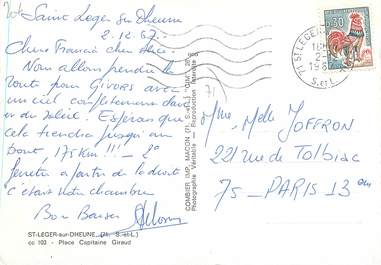 Saint Leger sur Dheune
2.12.67
Chere Francine cher
Nous allons prendre la
route pour GIVORS avec
un ciel completement dans
du Soleil. Espérons que
cela tiendra jusqu'au
bout, 175 Km !!! — 2e
fenetre a partir de la droite
c'était notre chambre
Bon Baiser
ST-LEGER-sur-DHEUNE (71. S.-et-L.)
cc 103 - Place Capitaine Giraud
COMBIER IMP. MACON (71. S.-et-L.) "CIM"
Photographie Véritable - Reproduction Interdite
71
71 ST-LEGER
S.et L.
0,30
Melle JOFFRON
221 rue de Tolbiac
75 - PARIS 13 em